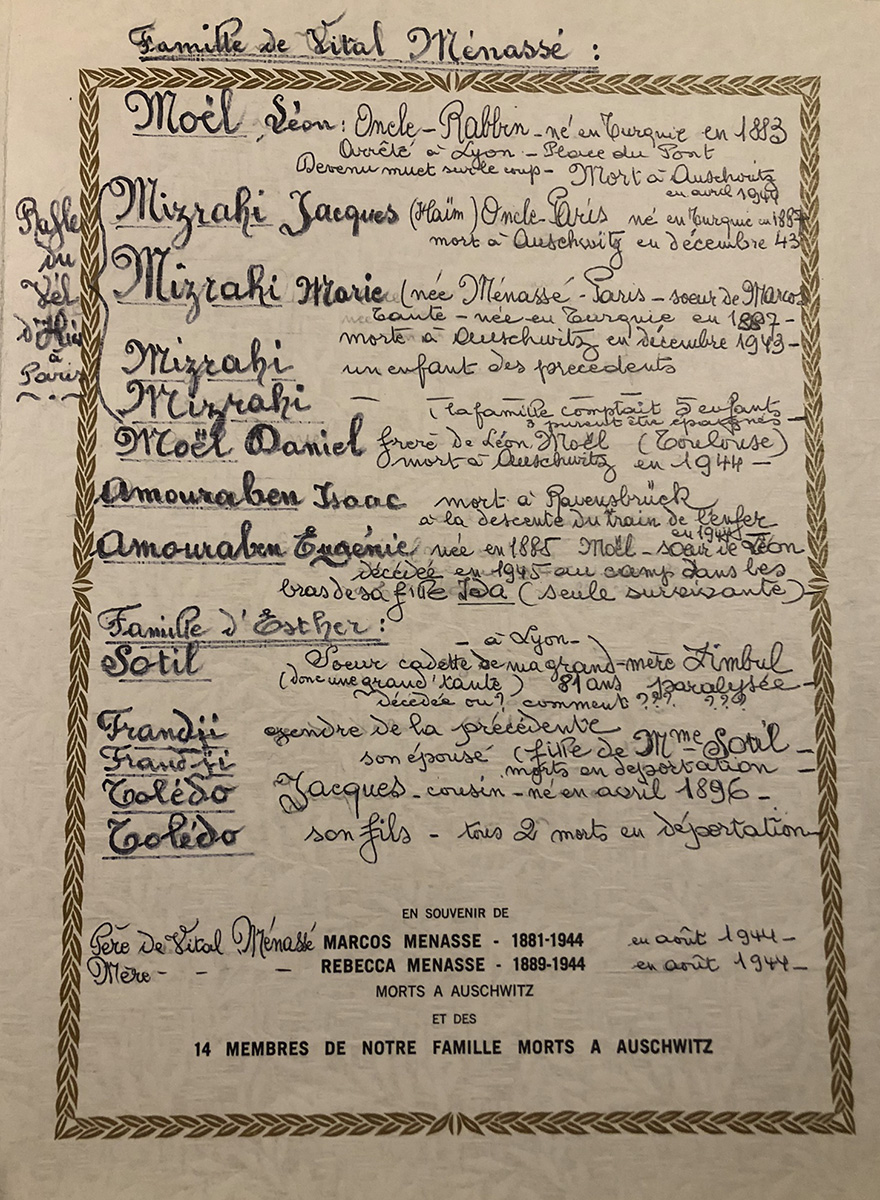 Famille de Vital Ménassé :
Moël Léon : Oncle - Rabbin - né en Turquie en 1883
Arrêté à Lyon - Place du Pont
Devenu muet sur le coup - Mort à Auschwitz
en avril 1944
Rafle du Vél d'Hiv à Paris
Mizrahi Jacques (Haïm) Oncle - Paris né en Turquie en 1887
mort à Auschwitz en décembre 43
Mizrahi Marie (née Ménassé - Paris - soeur de Marcos
tante - née en Turquie en 1887 -
morte à Auschwitz en décembre 1943 -
Mizrahi un enfant des précédents
Mizrahi — (la famille comptait 5 enfants
3 purent être épargnés -
Moël Daniel frère de Léon Moël (Toulouse)
mort à Auschwitz en 1944 -
Amouraben Isaac mort à Ravensbrück
à la descente du train de l'enfer
en 1944
Amouraben Eugénie née en 1885 Moël - soeur de Léon
décédée en 1945 au camp dans les
bras de sa fille Ida (seule survivante) -
Famille d'Esther :
- à Lyon -
Sotil Soeur cadette de ma grand-mère Zimbul
(donc une grand'tante) 81 ans paralysée -
décédée où ? comment ??? ???
Frandji gendre de la précédente
Frandji son épouse (fille de Mme Sotil -
morts en déportation -
Tolédo Jacques - cousin - né en avril 1896 -
Tolédo son fils - tous 2 morts en déportation
EN SOUVENIR DE
Père de Vital Ménassé MARCOS MENASSE - 1881-1944 en août 1944 -
Mère - - - REBECCA MENASSE - 1889-1944 en août 1944 -
MORTS A AUSCHWITZ
ET DES
14 MEMBRES DE NOTRE FAMILLE MORTS A AUSCHWITZ